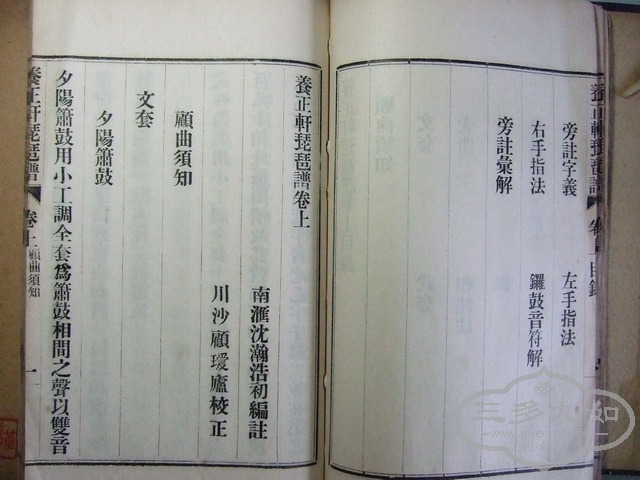 養正軒琵琶譜
旁註字義
左手指法
右手指法
鑼鼓音符解
旁註彙解
養正軒琵琶譜卷上
南滙沈瀚浩初編註
川沙顧瓊廬校正
顧曲須知
文套
夕陽簫鼓
夕陽簫鼓用小工調全套爲簫鼓相間之聲以雙音
養正軒琵琶譜
卷上
顧曲須知
一
三多九如